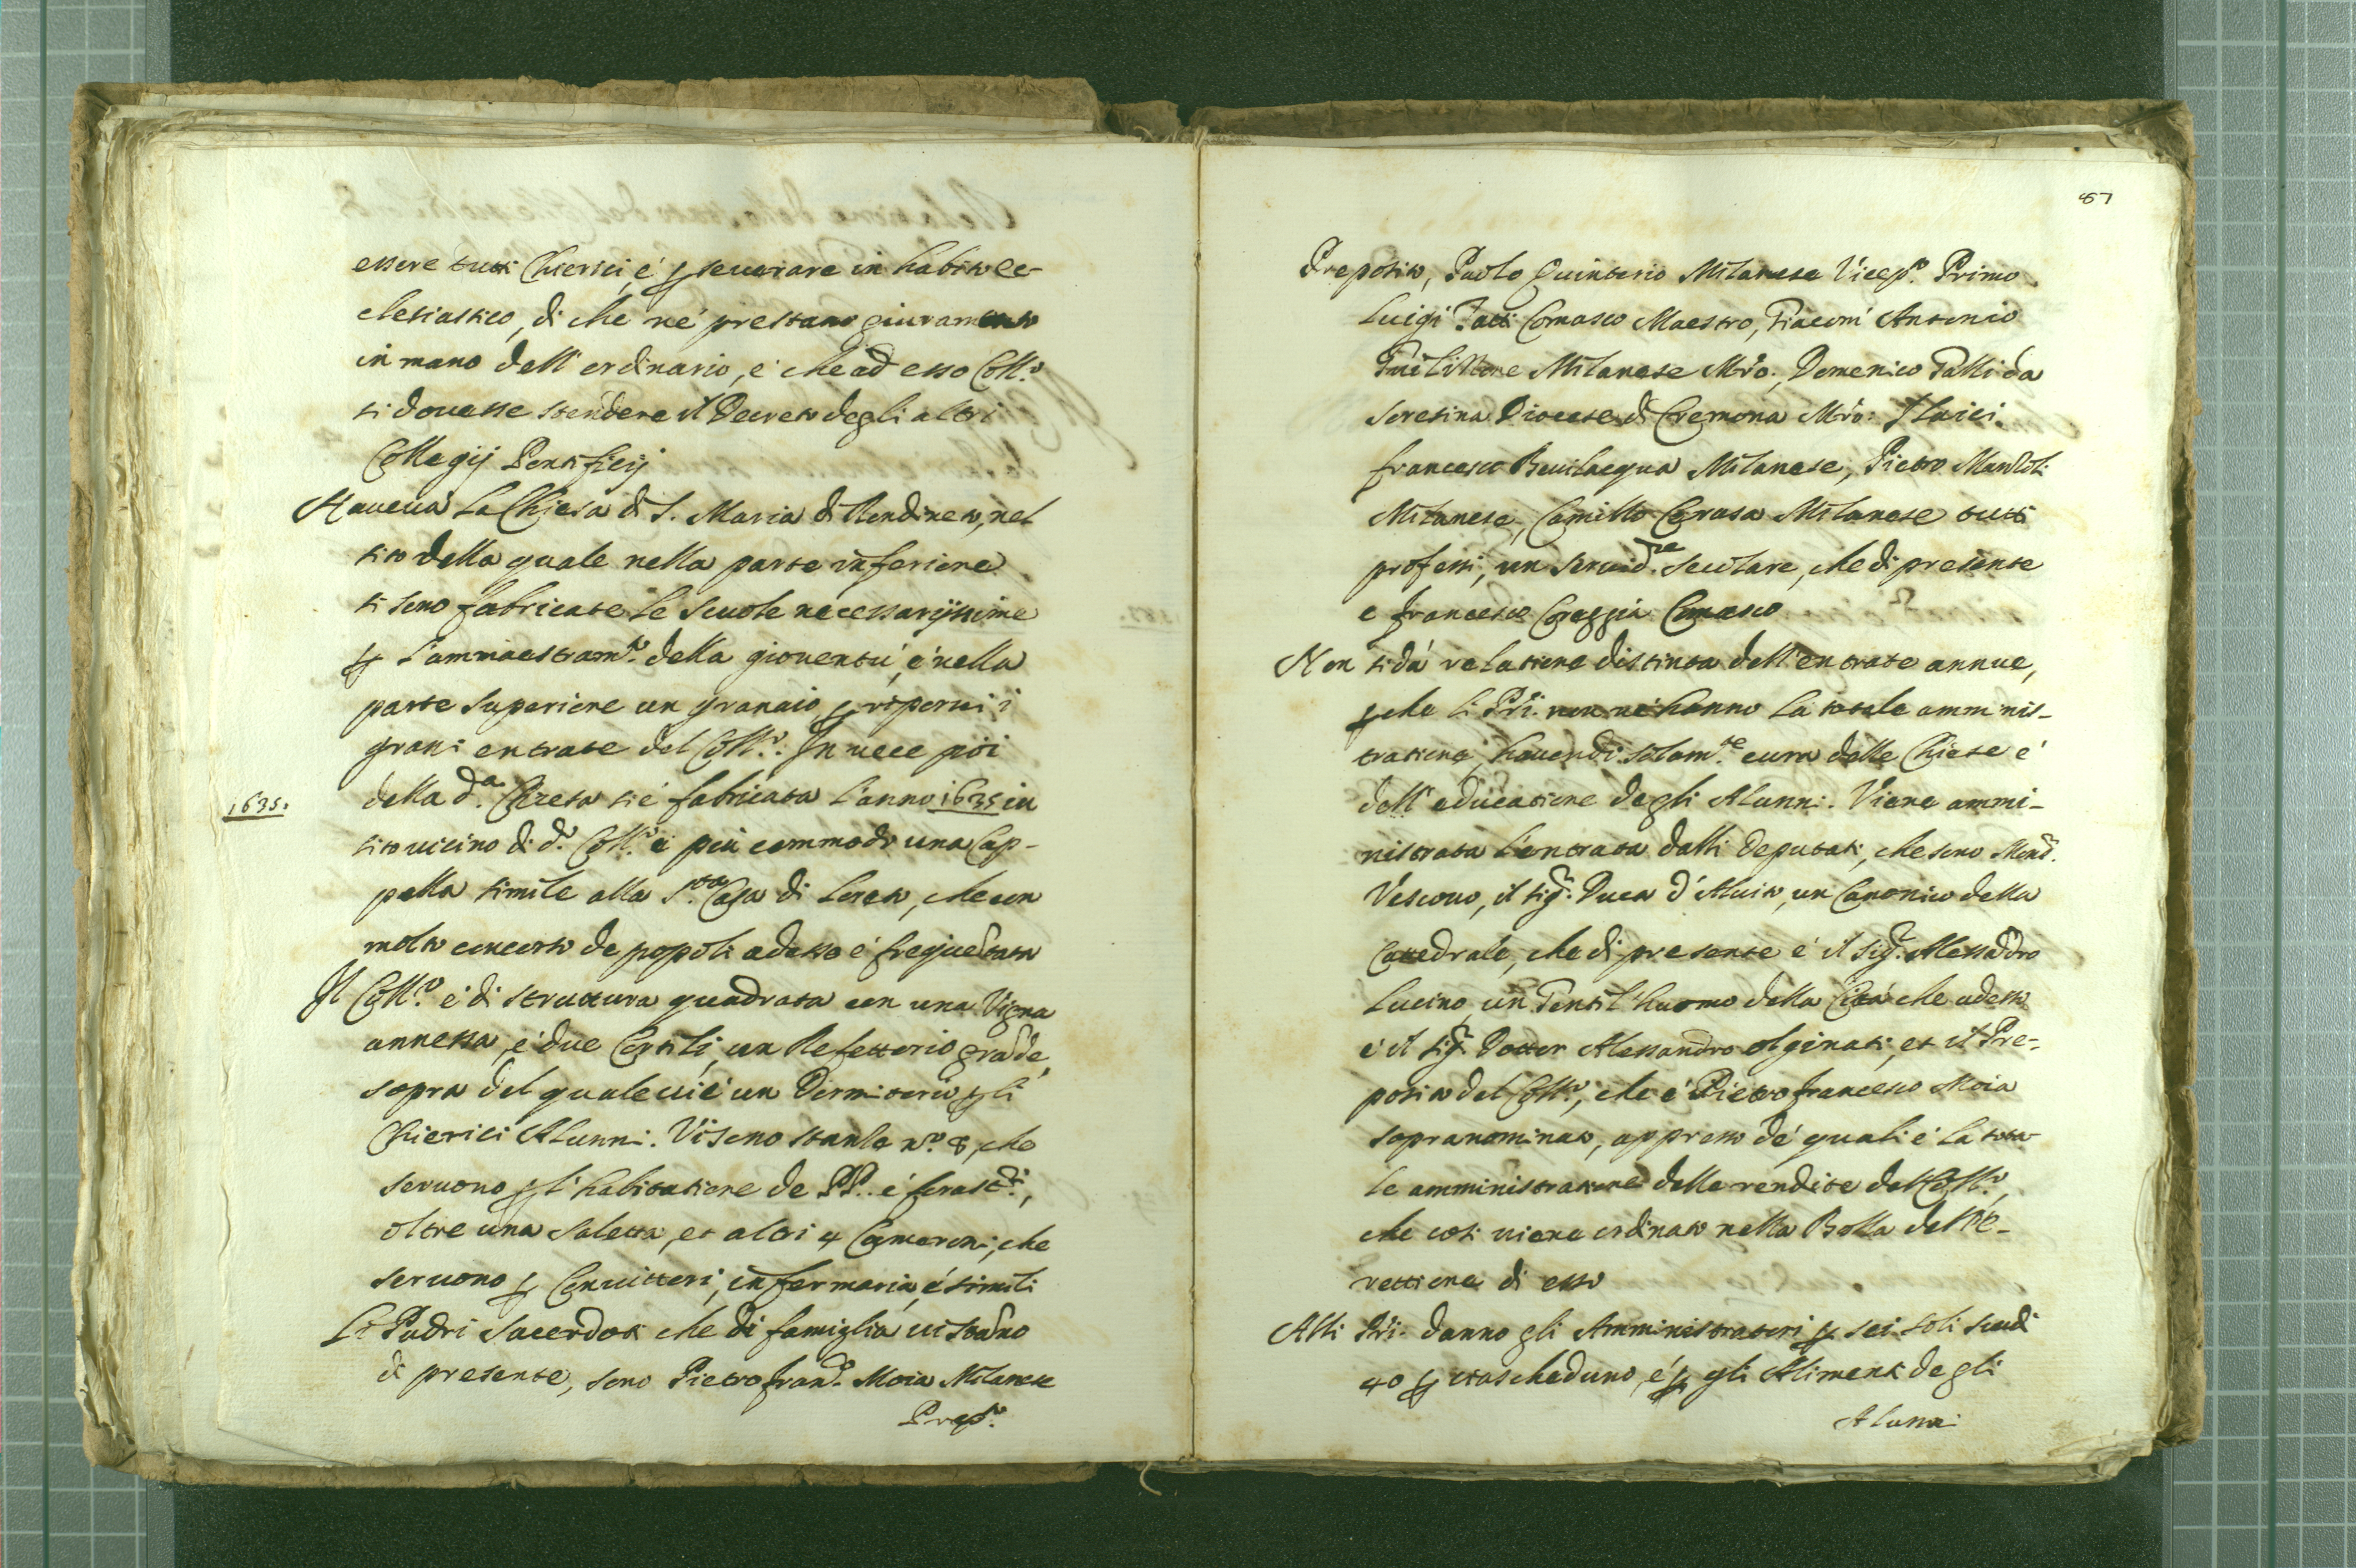 essere tutti Chierici, é p seuerare in habito ec-
clesiastico, di che né prestano giuramento
in mano dell' ordinario, é che ad esso Coll.º
si douesse stendere il Decreto degli altri
Collegij Pontificij
Haueua la Chiesa di S. Maria di Rondineto, nel
sito della quale nella parte inferiore
si sono fabricate le Scuole necessarijssime
p l'ammaestram.to della giouentú, é nella
parte superiore un granaio p riporui i
grani entrate del Coll.º. In uece poi
della d.a Chiesa si é fabricata l'anno 1635 in
1635.
sito uicino di d.º Coll.º é piú commodo una Cap-
pella simile alla S.ta Casa di Loreto, che con
molto concorso de popoli adesso é frequentata
Il Coll.º é di struttura quadrata con una Vigna
annessa, é due Cortili, un Refettorio grãde,
sopra del quale ui é un Dormitorio p gli
Chierici Alunni. Vi sono stanze n.º 8, che
seruono p l'habitatione de PP. é forast.ri,
oltre una Saletta, et altri 4 Cameroni, che
seruono p Conuittori, infermaria, é simili
Li Padri Sacerdoti che di famiglia ui stãno
di presente, sono Pietro Fran.º Moia Milanese
Prep.º
87
Preposito, Paolo Quinterio Milanese Vicep.º Primo
Luigi Comasco Maestro, Giacom' Antonio
Milanese Mrõ., Domenico Galli da
Soresina Diocese di Cremona Mrõ: Laici.
Francesco Beuilacqua Milanese, Pietro
Milanese, Camillo Cerasa Milanese tutti
professi, un seruid.re Secolare, che di presente
e Francesco Comasco
Non si dá relatione distinta dell'entrate annue,
p che li PPri. non né hanno la totale amminis-
tratione, hauendo solam.te cura delle Chiese é
dell' educatione degli Alunni. Viene ammi-
nistrata l'entrata dalli Deputati, che sono Mons.r
Vescouo, il Sig.r Duca d'Aluito, un Canonico della
Cattedrale, che di presente é il Sig.r Alessãdro
Lucino, un Gentil'huomo della Cittá che adesso
é il Sig.r Dottor Alessandro Olginati, et il Pre-
posito del Coll.º, che é Pietro Francesco Moia
sopranominato, appresso dé quali é la tota-
le amministratione delle rendite del Coll.º,
che cosi uiene ordinato nella Bolla dell'é-
rettione di esso
Alli PPri. danno gli Amministratori p sei soli scudi
40 p ciascheduno, é p gli Alimenti degli
Alunni